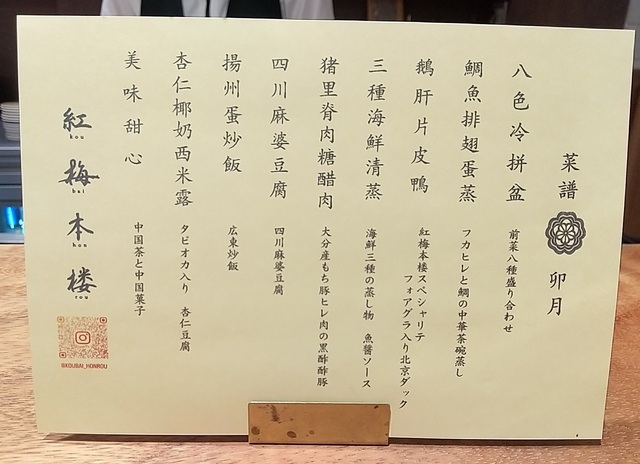 菜譜 卯月
八色冷拼盆
前菜八種盛り合わせ
鯛魚排翅蛋蒸
フカヒレと鯛の中華茶碗蒸し
鵝肝片皮鴨
紅梅本楼スペシャリテ
フォアグラ入り北京ダック
三種海鮮清蒸
海鮮三種の蒸し物 魚醬ソース
猪里脊肉糖醋肉
大分産もち豚ヒレ肉の黒酢酢豚
四川麻婆豆腐
四川麻婆豆腐
揚州蛋炒飯
広東炒飯
杏仁椰奶西米露
タピオカ入り 杏仁豆腐
美味甜心
中国茶と中国菓子
紅梅本楼
kou bai hon rou
@KOUBAI_HONROU